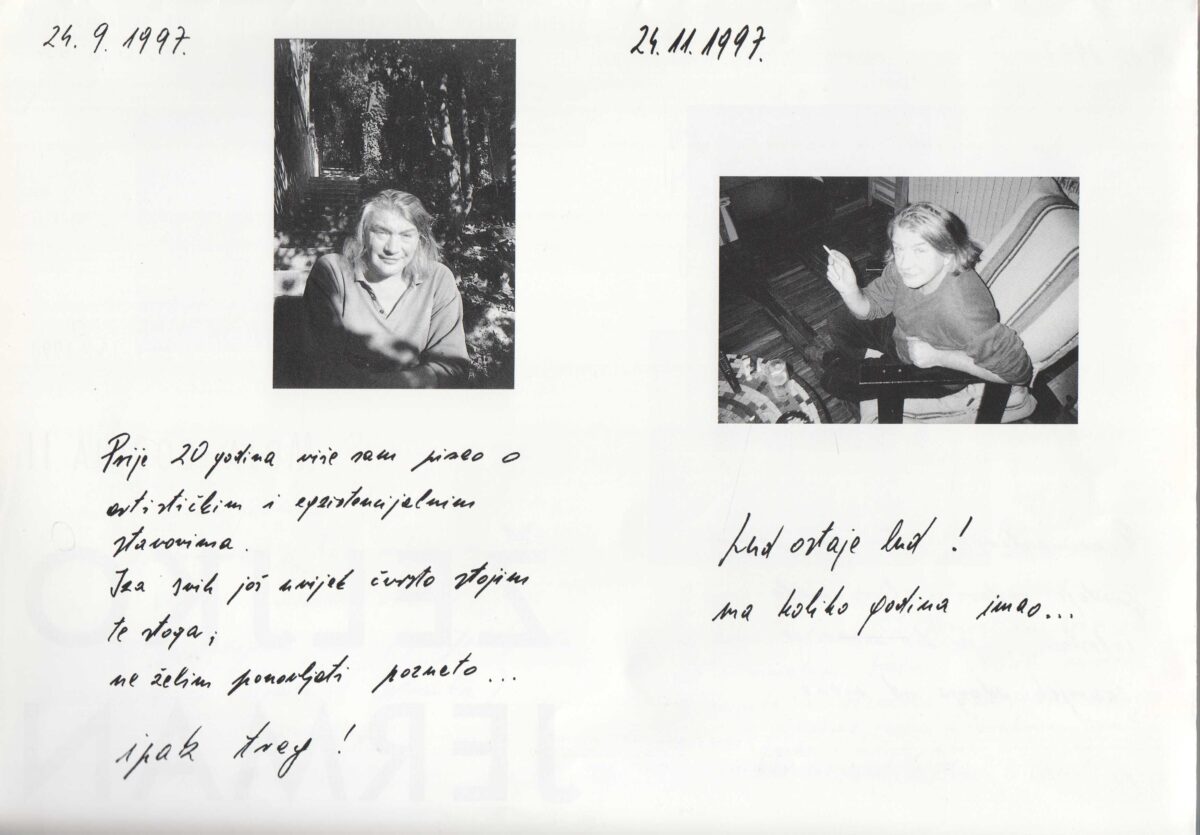 24. 9. 1997.
Prije 20 godina više sam pisao o
artističkim i egzistencijalnim
stavovima.
Iza svih još uvijek čvrsto stojim
te stoga;
ne želim ponavljati poznato...
ipak trag!
24. 11. 1997.
Lud ostaje lud!
ma koliko godina imao...
ŽELJKO
JERMAN